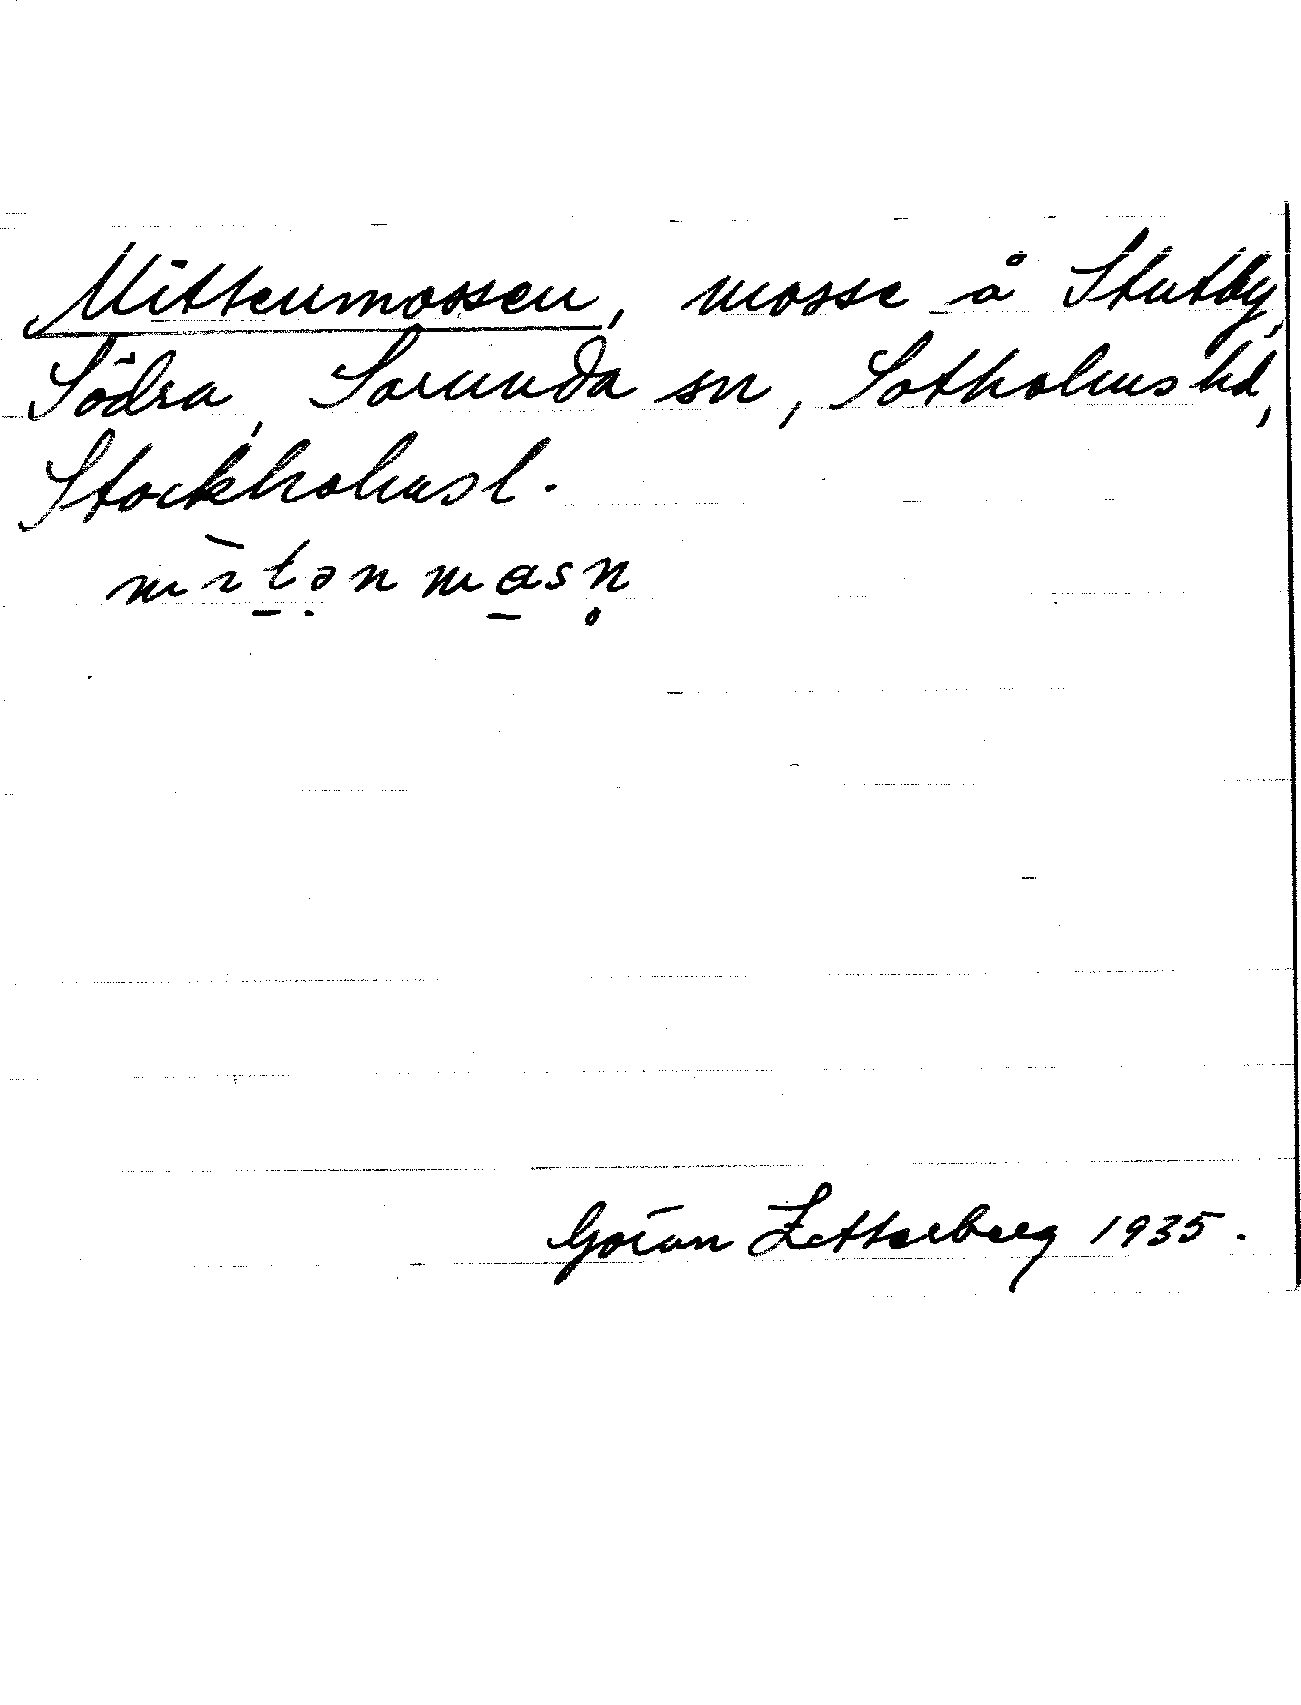 Mittenmossen, mosse å Stutby,
Södra, Sorunda sn, Sotholms hd,
Stockholmsl.
mìt̠ə̣nma̠sn̥
Göran Zetterberg 1935.